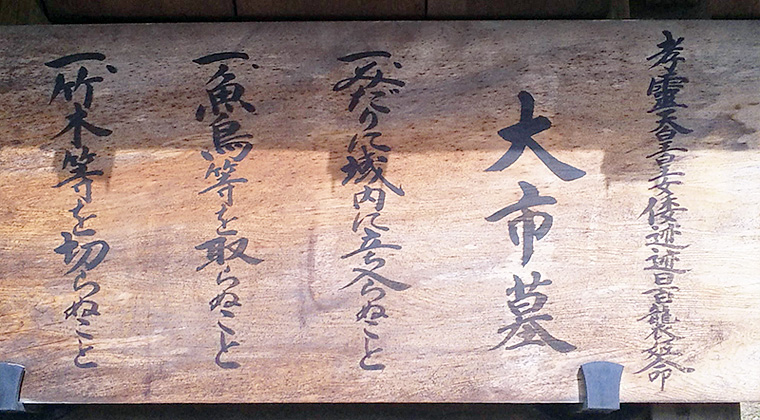 孝霊天皇皇女倭迹迹日百襲姫命
大市墓
一、みだりに域内に立ち入らぬこと
一、魚鳥等を取らぬこと
一、竹木等を切らぬこと